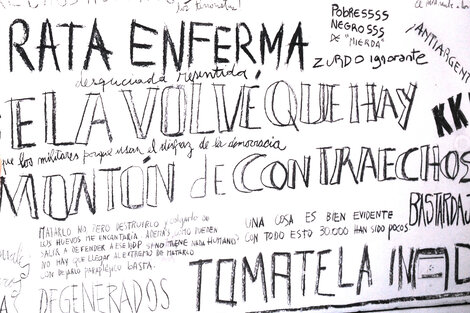 POBRESSSS
NEGROSSS
DE "MIERDA"
ZURDO ignorante
RATA ENFERMA
¡ANTIARGENT
desquiciada resentida
ELA VOLVÉ QUE HAY
KK
que los militares porque usan el disfraz de la democracia
MONTÓN de CONTRAECHOS
BASTARDA
MATARLO NO PERO DESTRUIRLO y colgarlo de
LOS HUEVOS ME ENCANTARÍA. ADEMÁS, CÓMO PUEDEN
SALIR A DEFENDER A ESE HDP SI NO TIENE NADA HUMANO?
NO HAY QUE LLEGAR AL EXTREMO DE MATARLO
CON DEJARLO PARAPLÉJICO BASTA.
UNA COSA ES BIEN EVIDENTE
CON TODO ESTO 30.000 HAN SIDO POCOS
TOMATELA INAD
DEGENERADOS